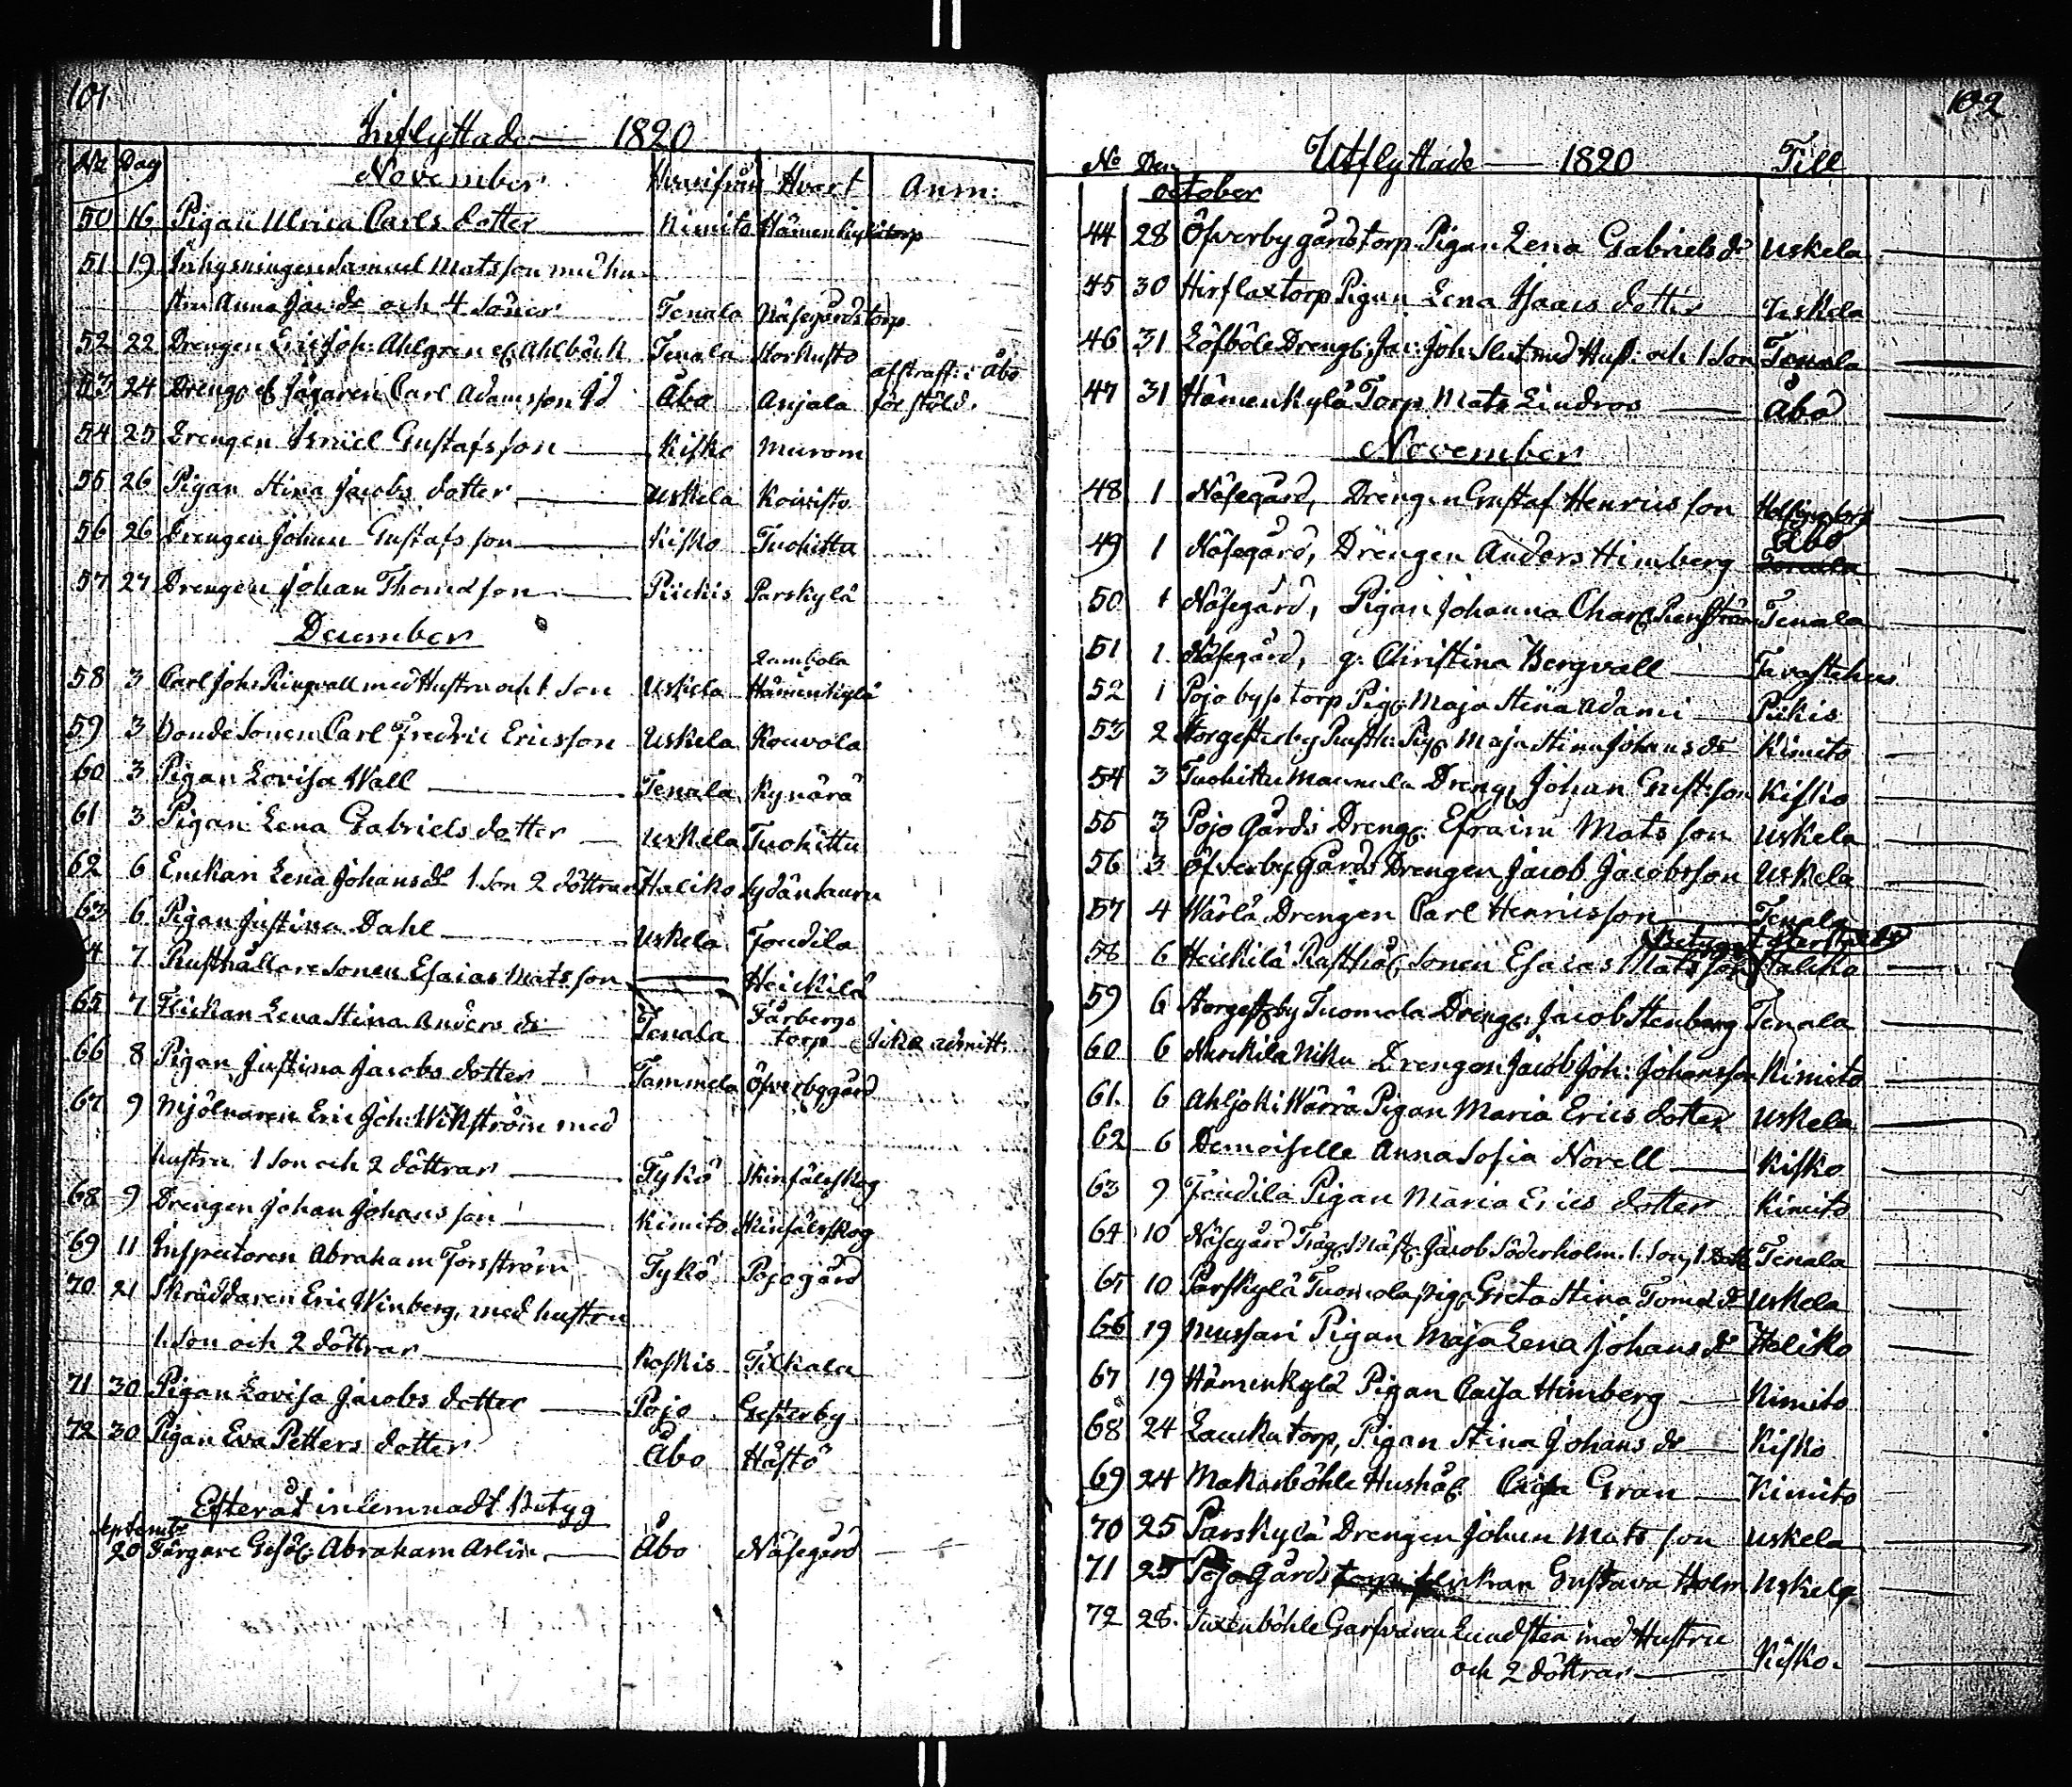 101
Inflyttade 1820
No Dag November Hvarifrån Hvart Anm:
50 16 Pigan Ulrica Carls dotter Kimito Hämenkylä torp
51 19 Inhysningen Samuel Matsson med hu
stru Anna Jac: dr och 4 söner Tenala Näsegårds torp
52 22 Drengen Eric Joh: Ahlgren el. Ahlbäck Tenala Korkusto
53 24 Dreng: el. Jägaren Carl Adamsson Åbo Anjala afstraff: i Åbo för stöld.
54 25 Drengen Gustafsson Kisko Murom
55 26 Pigan Stina Jacobs dotter Uskela Koivisto
56 26 Drengen Johan Gustafsson Kisko Tuohittu
57 27 Drengen Johan Thomasson Piickis Parskylä
December
58 3 Carl Joh: Ringvall med Hustru och 1 Son Uskela Lambola Hämenkylä
59 3 Bonde Sonen Carl Fredric Ericsson Uskela Kouvola
60 3 Pigan Lovisa Wall Tenala Kynärä
61 3 Pigan Lena Gabriels dotter Uskela Tuohittu
62 6 Enckan Lena Johans dr 1 Son 2 döttrar Haliko Sydänlauru
63 6 Pigan Justina Dahl Uskela Joudila
64 7 Rusthållare Sonen Esaias Matsson Heickilä
65 7 Flickan Lena Stina Anders dr Tenala Färbergs torp Icke admitt:
66 8 Pigan Justina Jacobs dotter Tammela Öfverbygård
67 9 Mjölnaren Eric Joh: Wikström med
hustru 1 Son och 2 döttrar Tykö Skinfälsskog
68 9 Drengen Johan Johansson Kimito Skinfälsskog
69 11 Inspectoren Abraham Forsström Tykö Pojogård
70 21 Skräddaren Eric Winberg, med hustru
1. Son och 2 döttrar Koskis Tilkala
71 30 Pigan Lovisa Jacobs dotter Pojo Gesterby
72 30 Pigan Eva Petters dotter Åbo Håstö
Efteråt inlemnadt Betyg
Septembr
20 Färgare Gesäl: Abraham Aslin Åbo Näsegård
102
No Dag Utflyttade 1820 Till
October
44 28 Öfverby gårds torp Pigan Lena Gabriels dr Uskela
45 30 Hirslax torp Pigan Lena Isaacs dotter Uskela
46 31 Löfböle Dreng: Jac: Joh: Slut med Hust: och 1 Son Tenala
47 31 Hämenkylä Torp Mats Lindros Åbo
November
48 1 Näsegård, Drengen Gustaf Henricsson Helsingfors
49 1 Näsegård, Drengen Anders Himberg Åbo Tenala
50 1 Näsegård, Pigan Johanna Charl: Tenala
51 1 Näsegård, g: Christina Bergvall Tavastehus
52 1 Pojo bys torp Pig: Maja Stina Adami Piikis
53 2 Norgesterby Rusth: Pig: Maja Stina Johans dr Kimito
54 3 Tuohittu Mannula Dreng: Johan Gustsson Kisko
55 3 Pojo Gårds Dreng: Efraim Matsson Uskela
56 3 Öfverby Gårds Drengen Jacob Jacobsson Uskela
57 4 Wärlä Drengen Carl Henricsson Tenala
Betyget
58 6 Heickilä Rusthål: Sonen Esaias Matsson Haliko
59 6 Storgesterby Tuomola Dreng: Jacob Stenberg Tenala
60 6 Nurckila Niku Drengen Jacob Joh: Johansson Kimito
61. 6 Ahljoki Wärrä Pigan Maria Erics dotter Uskela
62 6 Demoiselle Anna Sofia Norell Kisko
63 9 Joudila Pigan Maria Erics dotter Kimito
64 10 Näsegård Träg: Mäst: Jacob Söderholm. 1. Son, 1 Dott: Tenala
65 10 Parskylä Tuomola Pig: Greta Stina Tomas dr Uskela
66 19 Mussari Pigan Maja Lena Johans dr Haliko
67 19 Hämenkylä Pigan Caisa Himberg Kimito
68 24 Laucka torp, Pigan Stina Johans dr Kisko
69 24 Makarböhle Hushål: Caisa Gran Kimito
70 25 Parskylä Drengen Johan Matsson Uskela
71 25 Pojo Gårds torp flickan Gustava Holm Uskela
72 28. Tuxenböhle Garfvaren Lundsten med Hustru
och 2 döttrar Kisko.